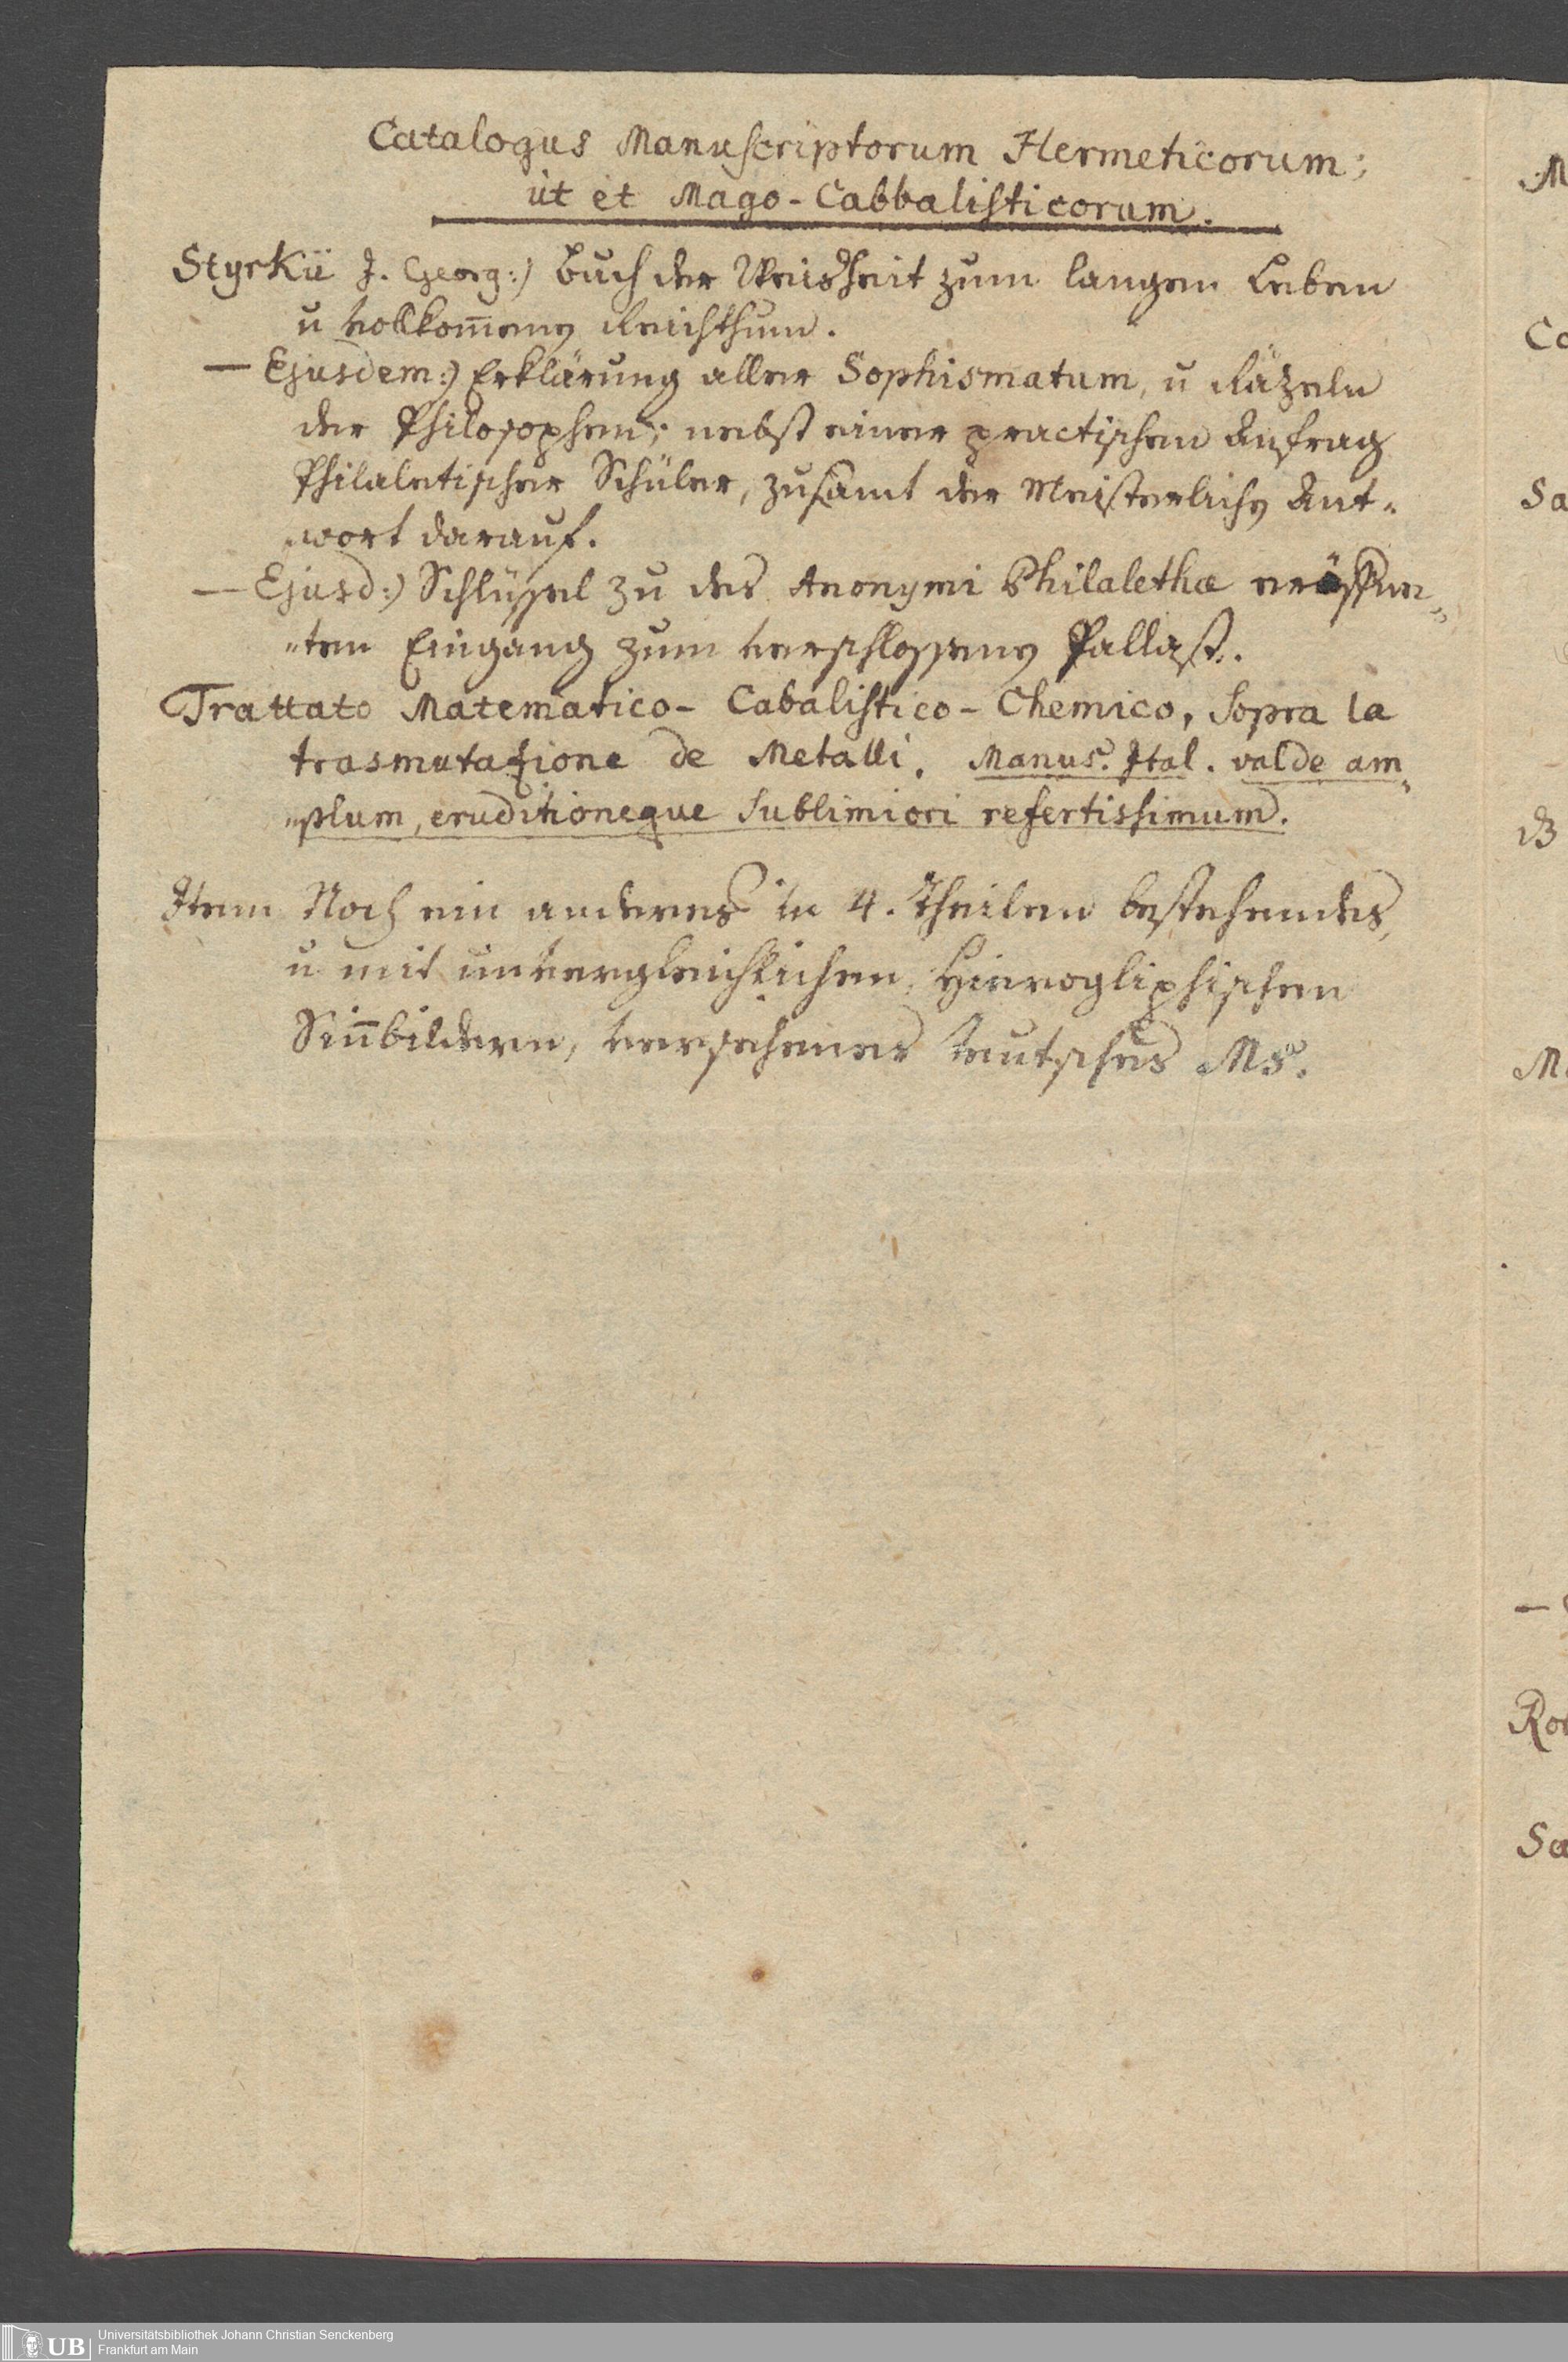 Catalogus Manuscriptorum Hermeticorum;
ut et Mago-Cabbalisticorum.
Styrkii J. Georg:) Buch der Weisheit zum langen Leben
u vollkom̅enen Reichthum.
— Ejusdem:) Erklärung aller Sophismatum, u Räzeln
der Philosophen; nebst einer practischen Anfrag
Philaletischer Schüler, zusamt der Meisterlichen Ant-
wort darauf.
— Ejusd:) Schlüssel zu des Anonymi Philalethæ eröffne-
ten Eingang zum verschlossenen Pallast.
Trattato Matematico-Cabalistico-Chemico, Sopra la
trasmutazione de Metalli. Manus. Ital. valde am-
plum, eruditioneque Sublimiori refertissimum.
Item Noch ein anderes in 4. Theilen bestehendes,
u mit unvergleichlichen Hierogliphischen
Sin̅bildern, versehenes teutsches Ms.
M
Co
Sa
B
M
—
Ro
Sa
UB Universitätsbibliothek Johann Christian Senckenberg
Frankfurt am Main